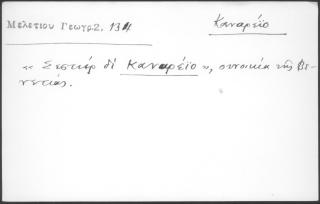 Μελετίου Γεωγρ. 2, 134
Καναρέϊο
« Σεστιέρ δὶ Καναρέϊο », συνοικία τῆς Βε-
νετίας.